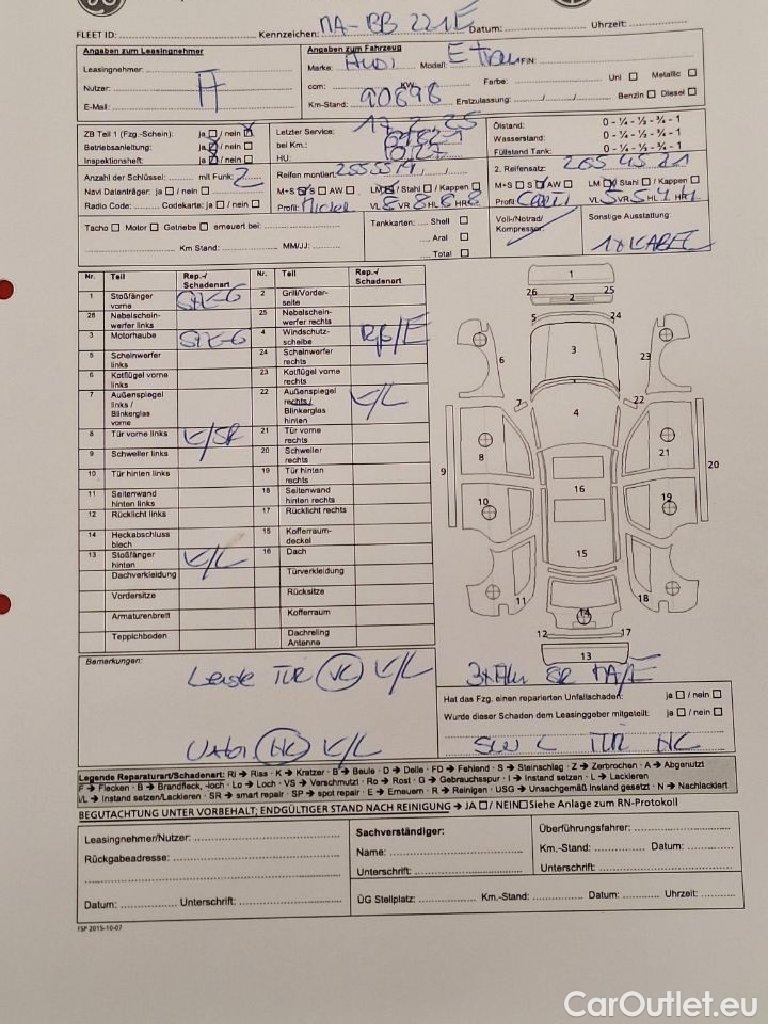 FLEET ID: Kennzeichen: MA-BB 221E Datum: Uhrzeit:
Angaben zum Leasingnehmer
Angaben zum Fahrzeug
Leasingnehmer:
Marke: AUDI Modell: E Tron FIN:
Nutzer:
ccm: KW: Farbe: Uni Metallic
E-Mail:
Km-Stand: 90898 Erstzulassung: Benzin Diesel
ZB Teil 1 (Fzg.-Schein): ja / nein
Betriebsanleitung: ja / nein
Inspektionsheft: ja / nein
Letzter Service:
bei Km.:
HU:
Ölstand: 0 - ¼ - ½ - ¾ - 1
Wasserstand: 0 - ¼ - ½ - ¾ - 1
Füllstand Tank: 0 - ¼ - ½ - ¾ - 1
Anzahl der Schlüssel: mit Funk: 2
Navi Datenträger: ja / nein
Radio Code: Codekarte: ja / nein
Reifen montiert:
M+S S AW LM / Stahl / Kappen
Profil: VL 8 VR 8 HL 8 HR 8
2. Reifensatz:
M+S S AW LM / Stahl / Kappen
Profil VL 5 VR 5 HL HR
Tacho Motor Getriebe erneuert bei:
Km Stand: MM/JJ:
Tankkarten: Shell
Aral
Total
Voll-/Notrad/
Kompressor
Sonstige Ausstattung:
1x KABEL
Nr. Teil Rep.-/ Schadenart Nr. Teil Rep.-/ Schadenart
1 Stoßfänger vorne 2 Grill/Vorder-seite
26 Nebelschein-werfer links 25 Nebelschein-werfer rechts
3 Motorhaube 4 Windschutz-scheibe
5 Scheinwerfer links 24 Scheinwerfer rechts
6 Kotflügel vorne links 23 Kotflügel vorne rechts
7 Außenspiegel links / Blinkerglas vorne 22 Außenspiegel rechts / Blinkerglas hinten K/L
8 Tür vorne links K/SR 21 Tür vorne rechts
9 Schweller links 20 Schweller rechts
10 Tür hinten links 19 Tür hinten rechts
11 Seitenwand hinten links 18 Seitenwand hinten rechts
12 Rücklicht links 17 Rücklicht rechts
14 Heckabschluss blech 15 Kofferraum-deckel
13 Stoßfänger hinten K/L 16 Dach
Dachverkleidung Türverkleidung
Vordersitze Rücksitze
Armaturenbrett Kofferraum
Teppichboden Dachreling Antenne
1
26 25
2
5 24
6 3 23
7 22
4
8 21
9 20
10 16 19
15
11 18
14
12 17
13
Bemerkungen:
Leiste TÜR K/L
K/L
Hat das Fzg. einen reparierten Unfallschaden: ja / nein
Wurde dieser Schaden dem Leasinggeber mitgeteilt: ja / nein
Legende Reparaturart/Schadenart: RI → Riss · K → Kratzer · B → Beule · D → Delle · FD → Fehlend · S → Steinschlag · Z → Zerbrochen · A → Abgenutzt
F → Flecken · B → Brandfleck, -loch · Lo → Loch · VS → Verschmutzt · Ro → Rost · G → Gebrauchsspur · I → Instand setzen · L → Lackieren
I/L → Instand setzen/Lackieren · SR → smart repair · SP → spot repair · E → Erneuern · R → Reinigen · USG → Unsachgemäß instand gesetzt · N → Nachlackiert
BEGUTACHTUNG UNTER VORBEHALT; ENDGÜLTIGER STAND NACH REINIGUNG → JA / NEIN Siehe Anlage zum RN-Protokoll
Leasingnehmer/Nutzer:
Rückgabeadresse:
Datum: Unterschrift:
Sachverständiger:
Name:
Unterschrift:
Überführungsfahrer:
Km.-Stand: Datum:
Unterschrift:
ÜG Stellplatz: Km.-Stand: Datum: Uhrzeit:
FSP 2015-10-07
CarOutlet.eu